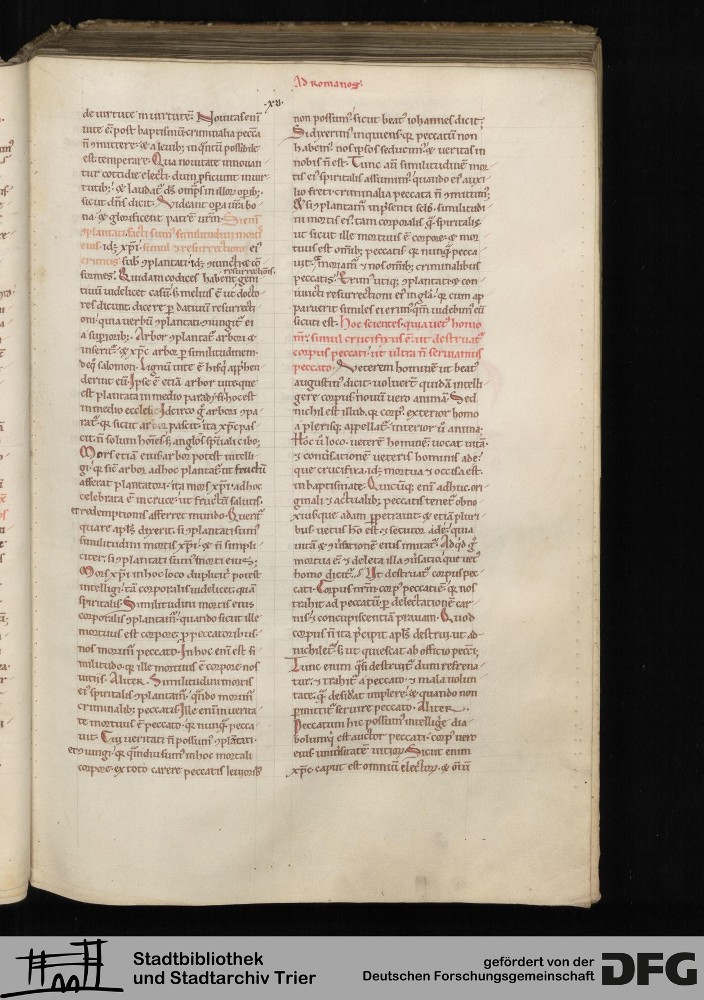 Ad romanos
.xv.
de uirtute in uirtutem. Nouitas enī
uite ē post baptismū criminalia peccā
n̄ mittere
est temperare. Qua nouitate innouan
tur cottidie electi. dum p̄ficiunt inuir
tutib;
sicut dn̄s dicit. Videant opera ur̄a bo
na. & glorificent patrē ur̄m. Si enī
9plantati facti sum' similitudini mortis
eius. idē xp̄i. simul & resurrectionis
erimus
formes. Quidam codices habent geni
resurrectionis
tiuū uidelicet casū. s; melius ē ut datio
res dicunt dicere per datiuū resurrecti
oni. quia uerbū 9plantati iungit' ei
a superiori. Arbor 9plantat' arbori &
inserit'. & xp̄c arbor per similitudinem.
salomon. Lignū uite ē hisq' apphen
derint eū. Ipse ē etiā arbor uite que
est plantata in medio paradysi. hoc est
in medio ecclesie. Idcirco g° arbori 9pa
rat'. q̄ sicut arbor pascit. ita xp̄c pas
cit. n̄ solum hoīes s; anglos sp̄uali cibo.
Mors etiā eius arbor potest intelli
gi. q̄ sic arbor adhoc plantat' ut fructū
afferat plantatori. ita mors xp̄i adhoc
celebrata ē in cruce. ut fructū salutis.
et redemptionis afferret mundo. Querit'
quare apl̄s dixerit. si 9plantati sum'
similitudini mortis xp̄i. & n̄ simpli
citer. si plantati sum' morti eius;
Mors xp̄i in hoc loco dupliciter potest
intelligi. tā corporalis uidelicet. quā
spiritalis. Similitudini mortis eius
corporalis 9plantam'. quando sicut ille
mortuus est corpore. pro peccatoribus.
nos morim' peccato. In hoc enī est si
militudo. q̄ ille mortuus ē corpore. nos
uitiis. Aliter. Similitudini mortis
ei' spiritalis 9plantam'. quando morim'
criminalib; peccatis. Ille enī in uerita
te mortuus ē peccato. q̄ nunquam pecca
uit. Cui' ueritati n̄ possum' 9plantari.
et iungi. q̄ quamdiu sum' in hoc mortali
corpore. ex toto carere peccatis leuioribus
non possum'. sicut beat' iohannes dicit.
Si dixerim' inquiens. q̄ peccatū non
habem'. nos ipsos seducim'. & ueritas in
nobis n̄ est. Tunc aut̄ similitudinē mor
tis ei' spiritalis assumim'. quando ei' auxi
lio freti criminalia peccata n̄
& si 9plantam' in presenti seclo. similitudi
ni mortis ei'. tam corporalis q̄ spiritalis.
ut sicut ille mortuus ē corpore. & mor
tuus est omīb; peccatis. q̄ nunquam pecca
uit. moriam' & nos omīb; criminalibus
peccatis. Erim' utiq; 9plantati & con
iuncti resurrectioni ei' in gl̄a. q̄ cum ap
paruerit similes ei erim'. qm̄ uidebim' eū
sicuti est. Hoc scientes. quia uet' homo
nr̄ simul crucifixus ē. ut destruat'
corpus peccati. ut ultra n̄ seruiamus
peccato. Veterem hominē ut beat'
augustin' dicit. uoluerunt quidā intelli
gere corpus. nouū uero animā. Sed
nichil est illud. q̄ corp' exterior homo
a plerisq; appellat'. interior ū anima.
Hoc ū loco. ueterē hominē uocat uitā.
& conuersationē ueteris hominis ade.
que crucifixa. idē mortua & occisa est.
in baptismate. Quicūq; enī adhuc ori
ginali & actualib; peccatis tenet' obno
xius. que adam perpetrauit. & etiā pluri
bus. uetus hō est. & secutor ade. quia
uitā & 9uersationē eius imitat'. Ad quod g°
mortua ē & deleta illa 9uersatio. que uet'
homo dicit'. Vt destruat' corpus pec
cati. Corpus nr̄m corp' peccati ē. q̄ nos
trahit ad peccatū per delectationē car
nis. & concupiscentiā prauam. Quod
corpus n̄ ita precipit apl̄s destrui. ut ad
nichilet'. s; ut quiescat ab officio peccī.
Tunc enim quasi destruit' dum refrena
tur. & trahit' a peccato. & mala uolun
tate. quam desiderat implere. & quando non
permittit' seruire peccato. Aliter.
Peccatum hic possum' intelligere dia
bolum. qui est auctor peccati. corp' uero
eius uniuersitatē uitiorum. Sicut enim
xp̄c caput est omnium electorum. & omīū
Stadtbibliothek
und Stadtarchiv Trier
gefördert von der
Deutschen Forschungsgemeinschaft
DFG